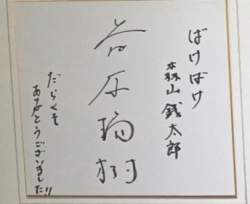 ばけばけ
森山 銭太郎
だらくそ
ありがとうございました!!